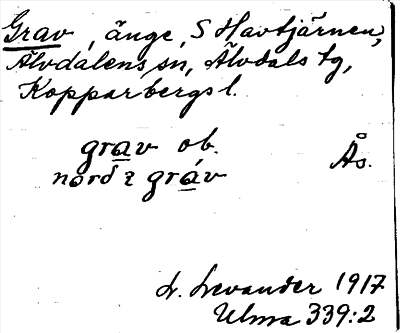 Grav, änge, S Havtjärnen,
Älvdalens sn, Älvdals tg,
Kopparbergs l.
grav ob. Ås.
nord ą gráv
L. Levander 1917
Ulma 339:2